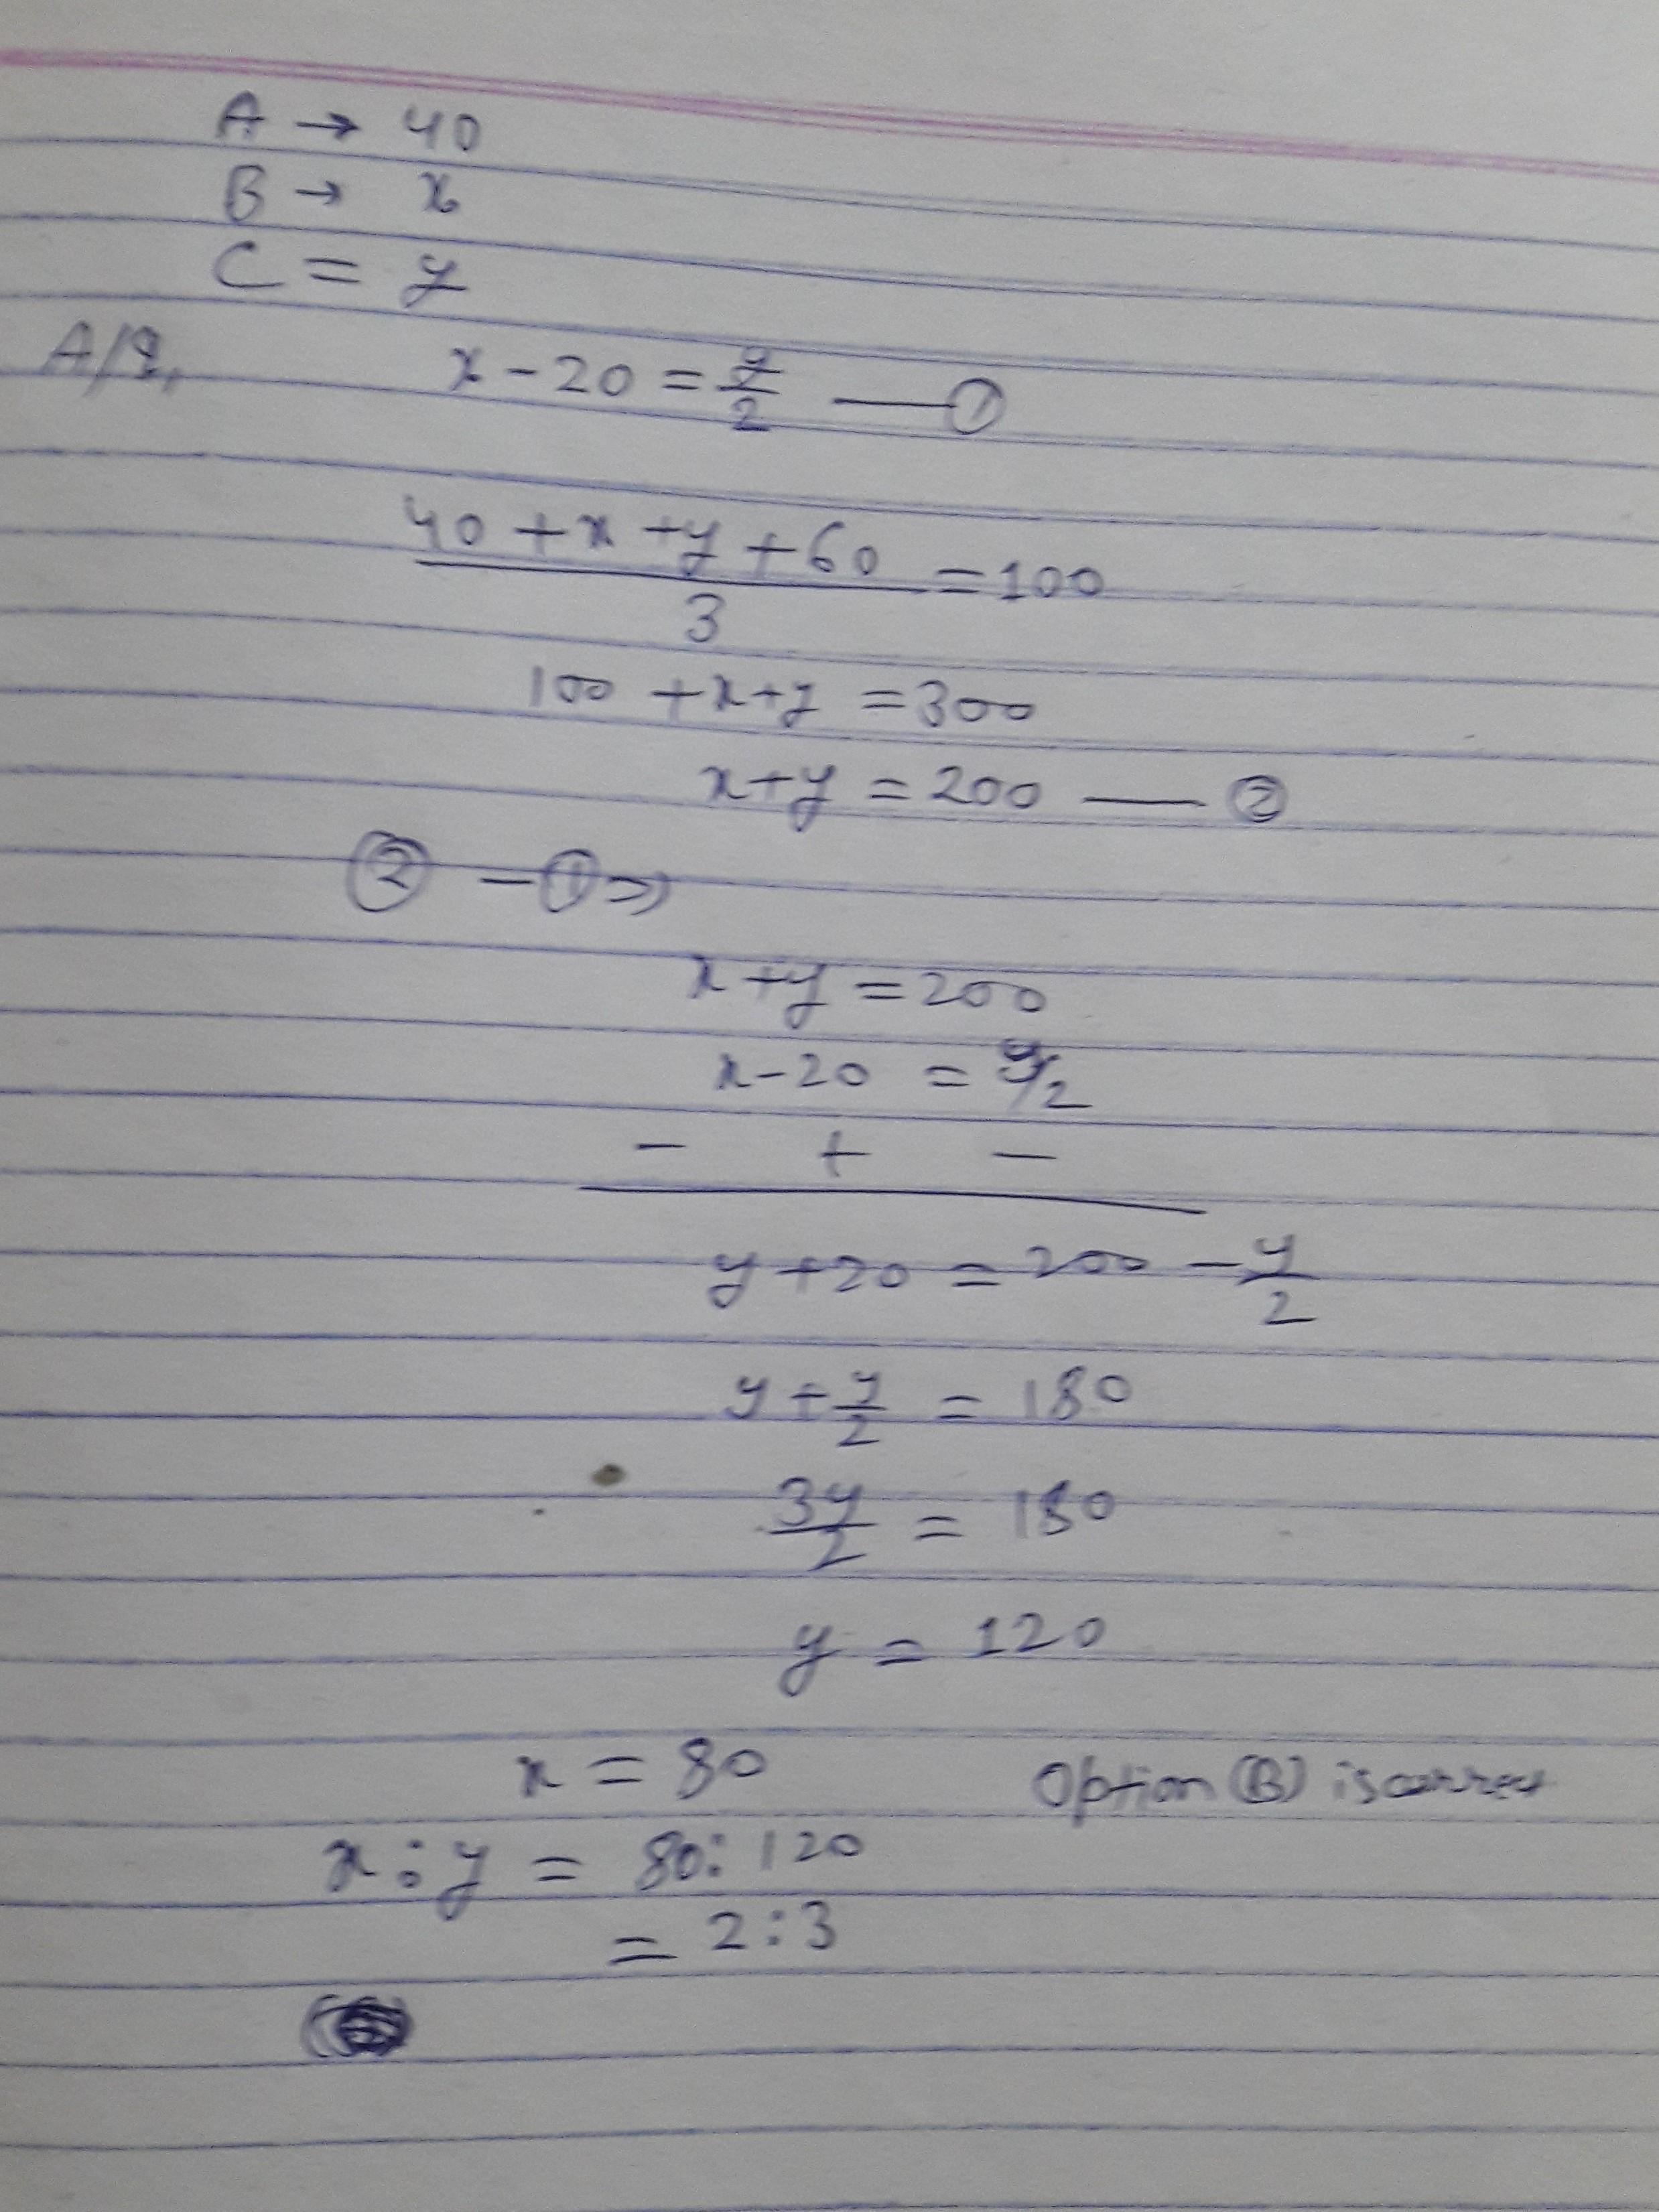 A → 40
B → x
C = y
A/Q, x - 20 = y/2 —— ①
(40 + x + y + 60)/3 = 100
100 + x + y = 300
x + y = 200 —— ②
② - ① ⇒
x + y = 200
x - 20 = y/2
- + -
y + 20 = 200 - y/2
y + y/2 = 180
3y/2 = 180
y = 120
x = 80 Option (B) is correct
x : y = 80 : 120
= 2 : 3